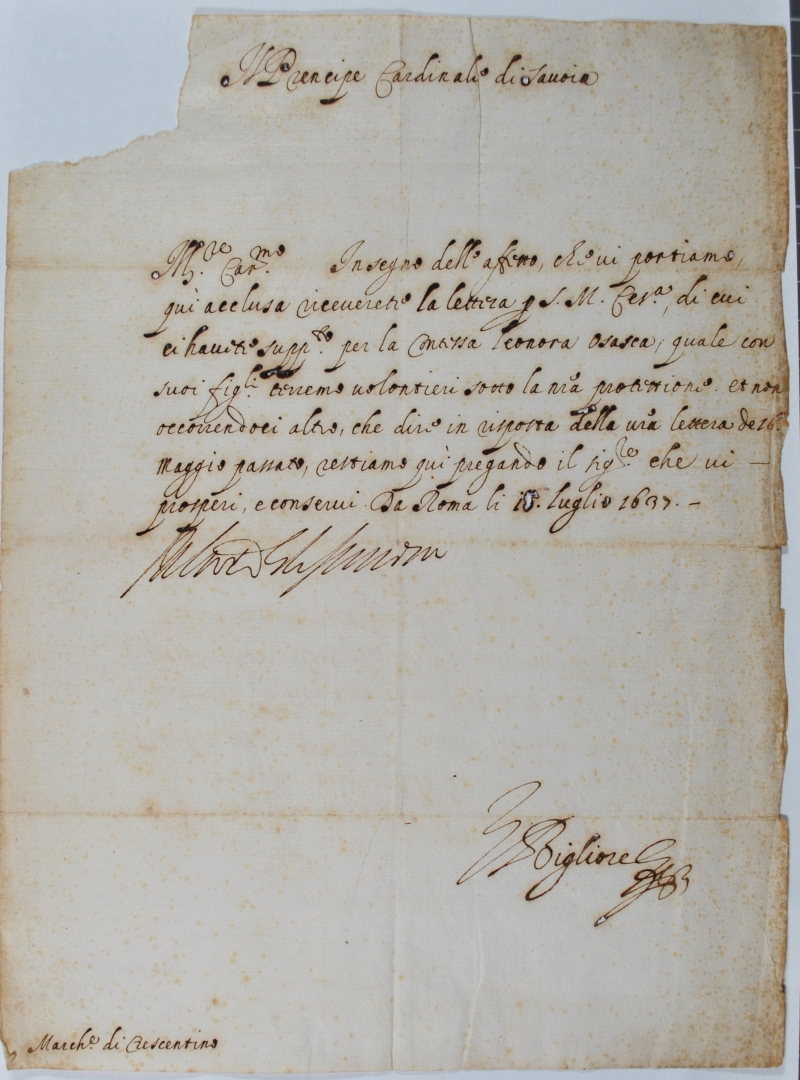 Il Prencipe Cardinale di Savoia
M.re Car.mo In segno dell'affetto, che vi portiamo,
quì acclusa riceverete la lettera p S. M. Ces.a, di cui
ci havete supp.to per la Contessa Leonora Osasca, quale con
suoi figl.li terremo volontieri sotto la n̄ra protettione. et non
occorrendoci altro, che dire in risposta della v̄ra lettera de 16.
Maggio passato, restiamo quì pregando il Sig.re che vi —
prosperi, e conservi. Da Roma li Luglio 1637. —
Bigliore
March.e di Crescentino